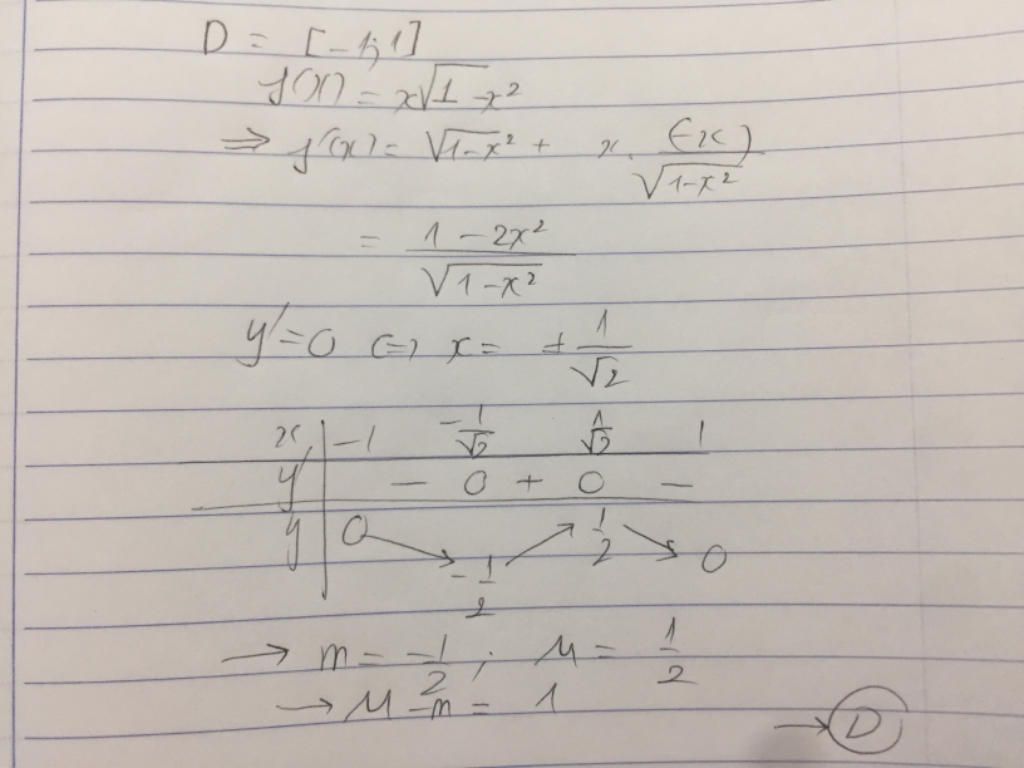 D = [-1;1]
f(x) = x√(1-x²)
⇒ f'(x) = √(1-x²) + x. (-x)/√(1-x²)
= (1-2x²)/√(1-x²)
y'=0 ⇔ x = ± 1/√2
x | -1 -1/√2 1/√2 1
y' | - 0 + 0 -
y | 0 ↘ -1/2 ↗ 1/2 ↘ 0
→ m = -1/2 ; M = 1/2
→ M - m = 1
→ D